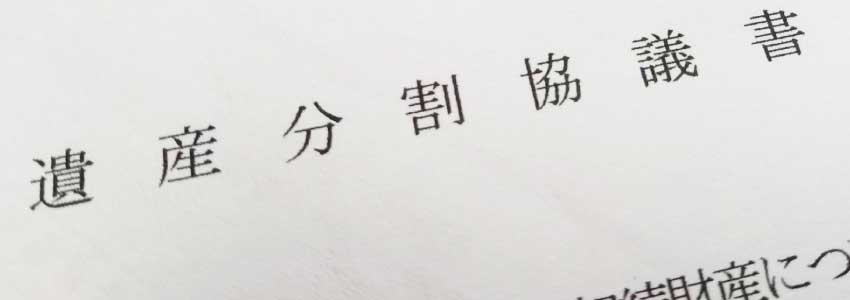 遺産分割協議書
相続財産につ